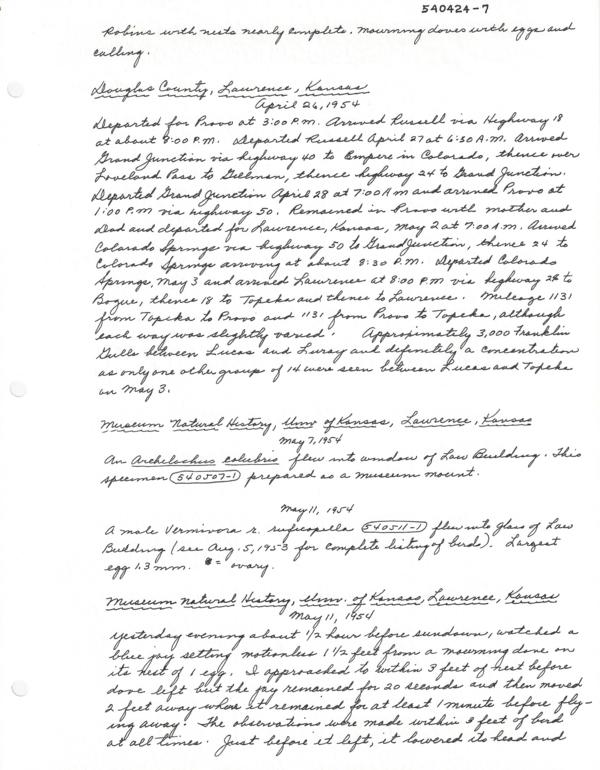 540424-7
Robins with nests nearly complete. Mourning doves with eggs and
calling.
Douglas County, Lawrence, Kansas
April 26, 1954
Departed for Provo at 3:00 P.M. Arrived Russell via Highway 18
at about 8:00 P.M. Departed Russell April 27 at 6:30 A.M. Arrived
Grand Junction via highway 40 to Empire in Colorado, thence over
Loveland Pass to Gillman, thence highway 24 to Grand Junction.
Departed Grand Junction April 28 at 7:00 A M and arrived Provo at
1:00 P.M via highway 50. Remained in Provo with mother and
Dad and departed for Lawrence, Kansas, May 2 at 7:00 A.M. Arrived
Colorado Springs via highway 50 to Grand Junction, thence 24 to
Colorado Springs arriving at about 8:30 P.M. Departed Colorado
Springs, May 3 and arrived Lawrence at 8:00 P.M via highway 24 to
Bogue, thence 18 to Topeka and thence to Lawrence. Mileage 1131
from Topeka to Provo and 1131 from Provo to Topeka, although
each way was slightly varied. Approximately 3,000 Franklin
Gulls between Lucas and Luray and definitely a concentration
as only one other group of 14 were seen between Lucas and Topeka
on May 3.
Museum Natural History, Univ of Kansas, Lawrence, Kansas
May 7, 1954
An Archilochus colubris flew into window of Law Building. This
specimen (540507-1) prepared as a museum mount.
May 11, 1954
A male Vermivora r. ruficapilla (540511-1) flew into glass of Law
Building (see Aug. 5, 1953 for complete listing of birds). Largest
egg 1.3 mm. = ovary.
Museum Natural History, Univ. of Kansas, Lawrence, Kansas
May 11, 1954
Yesterday evening about 1/2 hour before sundown, watched a
blue jay setting motionless 1 1/2 feet from a mourning dove on
its nest of 1 egg. I approached to within 3 feet of nest before
dove left but the jay remained for 20 seconds and then moved
2 feet away where it remained for at least 1 minute before fly-
ing away. The observations were made within 3 feet of bird
at all times. Just before it left, it lowered its head and